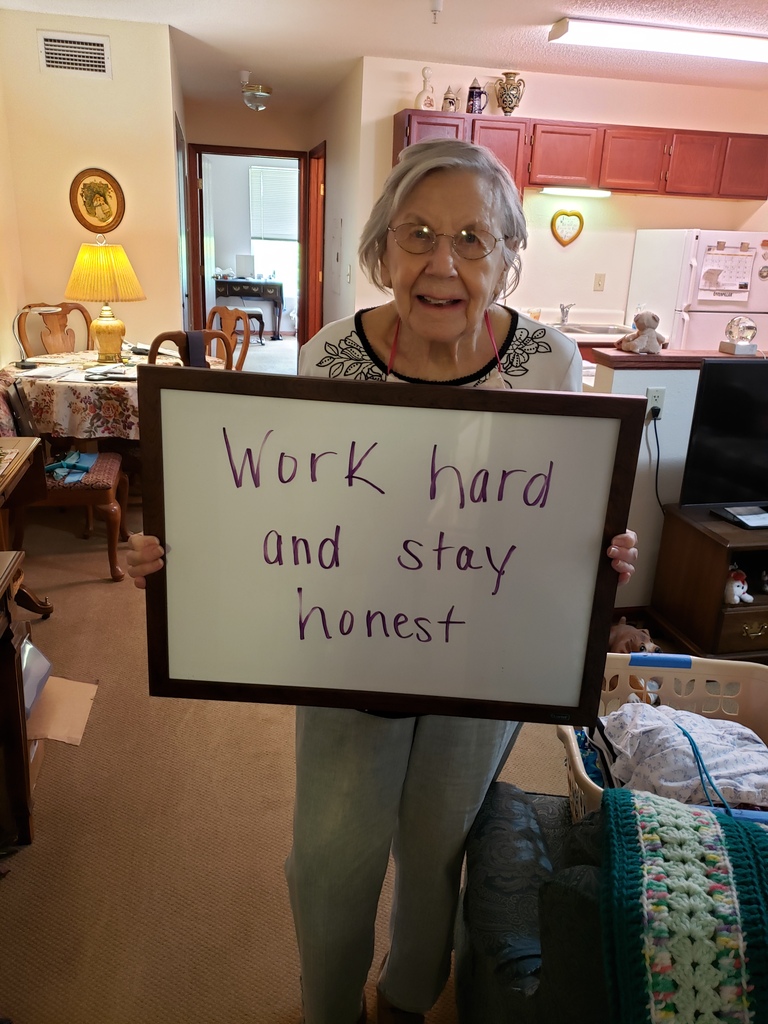 Work hard
and stay
honest